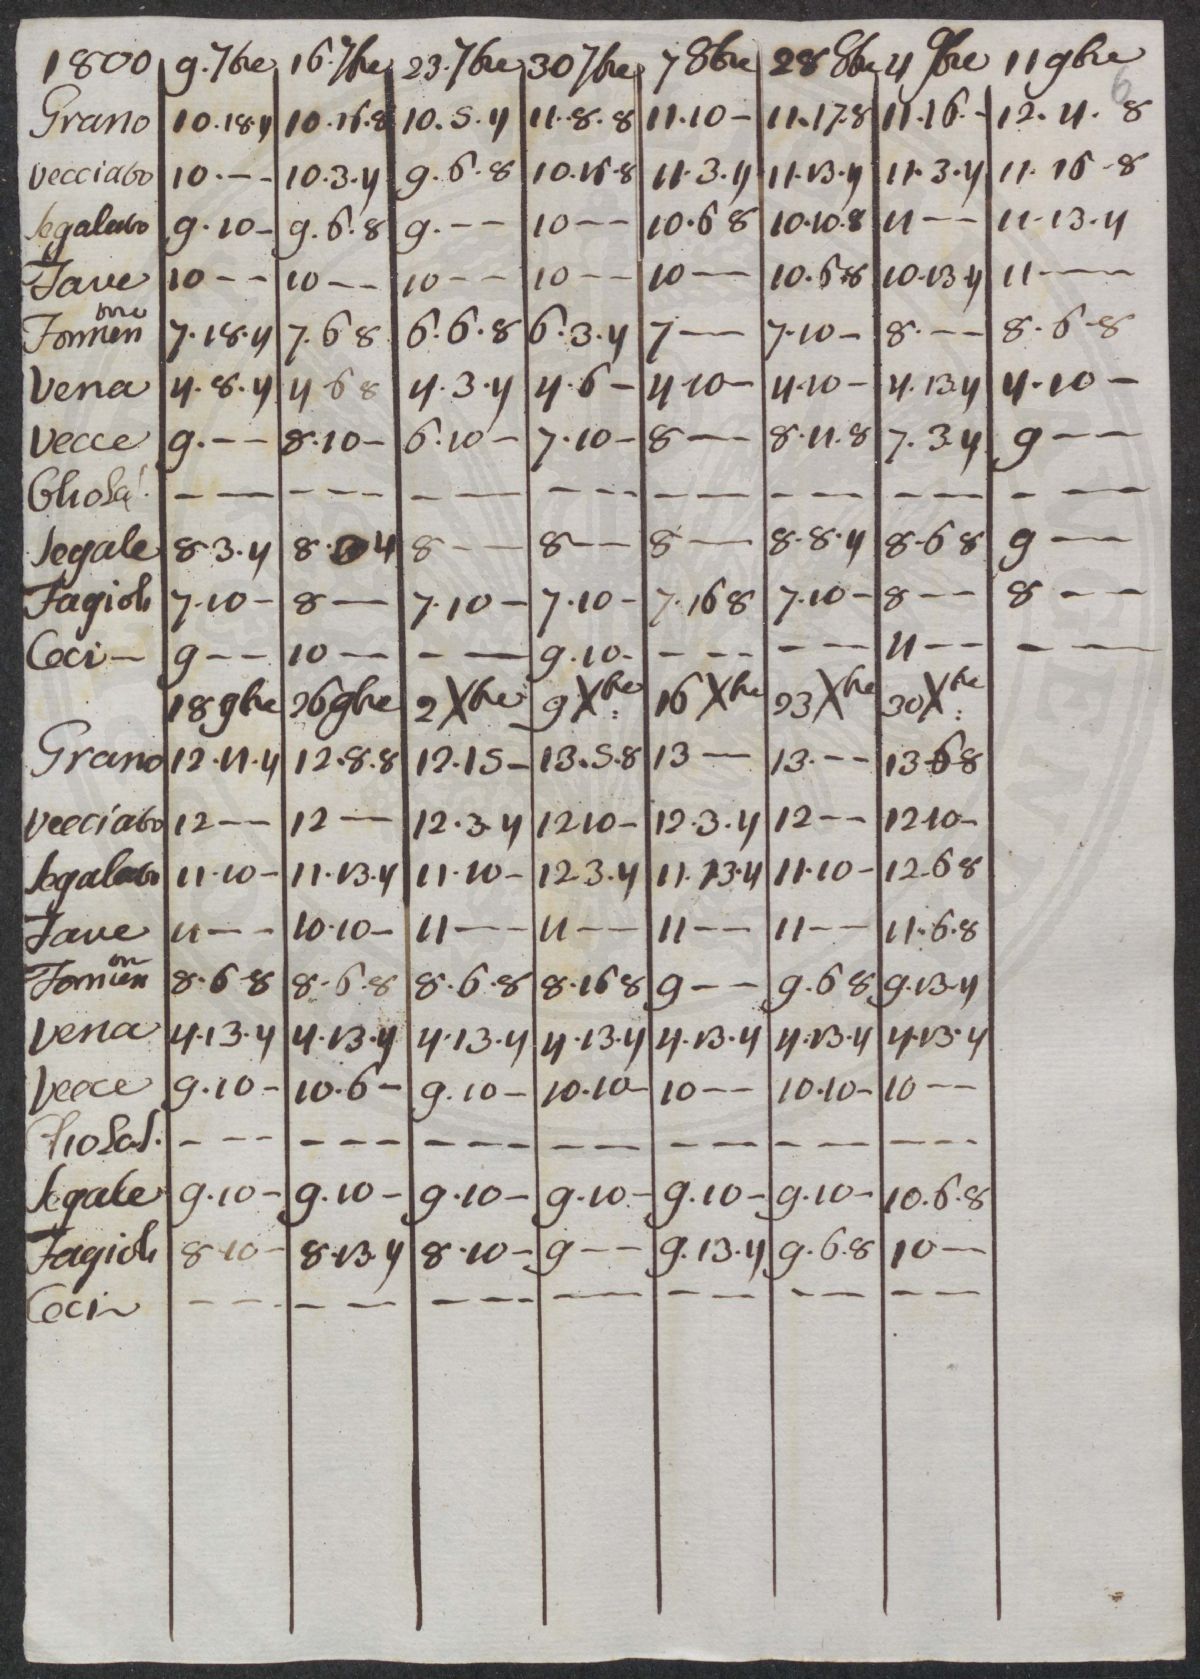 1800 9.7bre 16.7bre 23.7bre 30 7bre 7 8bre 28 8bre 4 9bre 11 9bre
6
Grano 10.18.4 10.16.8 10.5.4 11.8.8 11.10 – 11.17.8 11.16. – 12.4.8
Vecciato 10. – – 10.3.4 9.6.8 10.16.8 11.3.4 11.13.4 11.3.4 11.16.8
Segalato 9.10 – 9.6.8 9. – – 10 – – 10.6 8 10.10.8 11 – – 11.13.4
Fave 10 – – 10 – – 10 – – 10 – – 10 – – 10.6.8 10.13.4 11 – –
Formen 7.18.4 7.6 8 6.6.8 6.3.4 7 – – 7.10 – 8. – – 8.6.8
Vena 4.8.4 4 6 8 4.3.4 4.6 – 4.10 – 4.10 – 4.13.4 4.10 –
Vecce 9. – – 8.10 – 6.10 – 7.10 – 8 – – 8.11.8 7.3.4 9 – –
– – – – – – – – – – – – – – – – – – – – –
Segale 8.3.4 8. 4 8 – – 8 – – 8 – – 8.8.4 8.6 8 9 – –
Fagioli 7.10 – 8 – – 7.10 – 7.10 – 7.16 8 7.10 – 8 – – 8 – –
Ceci – 9 – – 10 – – – – 9.10 – – – – – – 11 – – – –
18 9bre 26 9bre 2 Xbre 9 Xbre: 16 Xbre 23 Xbre 30 Xbre:
Grano 12.11.4 12.8.8 12.15 – 13.5.8 13 – – 13. – – 13 6 8
Vecciato 12 – – 12 – – 12.3.4 12 10 – 12.3.4 12 – – 12 10 –
Segalato 11.10 – 11.13.4 11.10 – 12 3.4 11.13.4 11.10 – 12.6 8
Fave 11 – – 10.10 – 11 – – 11 – – 11 – – 11 – – 11.6.8
Formen 8.6.8 8.6.8 8.6.8 8.16 8 9 – – 9.6 8 9.13.4
Vena 4.13.4 4.13.4 4.13.4 4.13.4 4.13.4 4.13.4 4.13.4
Vecce 9.10 – 10.6 – 9.10 – 10.10 – 10 – – 10.10 – 10 – –
– – – – – – – – – – – – – – – – – – – – –
Segale 9.10 – 9.10 – 9.10 – 9.10 – 9.10 – 9.10 – 10.6.8
Fagioli 8.10 – 8.13 4 8.10 – 9 – – 9.13.4 9.6.8 10 – –
Ceci – – – – – – – – – – – – – – – – –